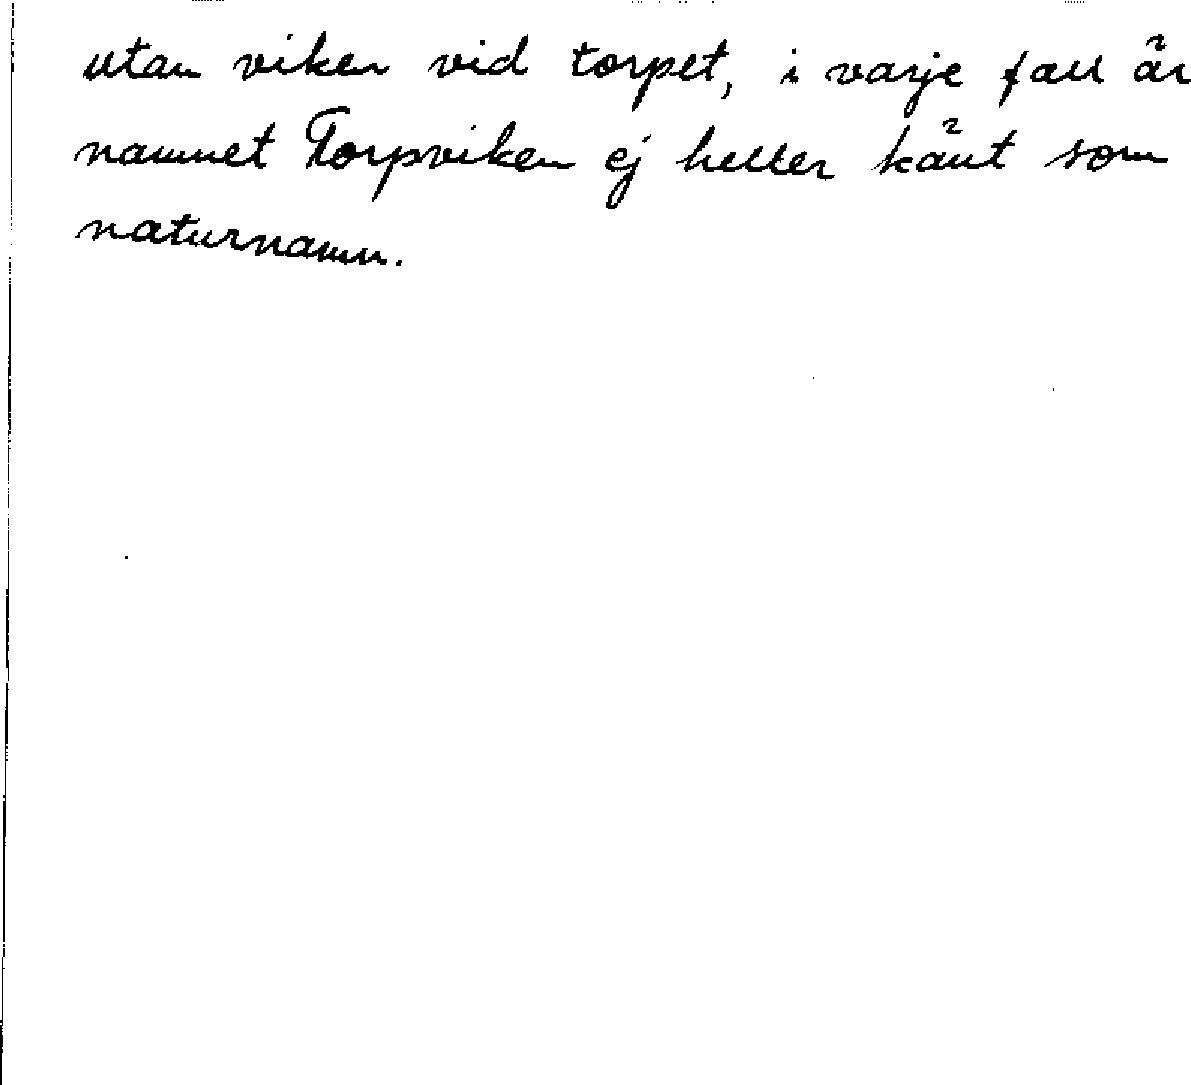 utan viken vid torpet, i varje fall är
namnet Torpviken ej heller känt som
naturnamn.